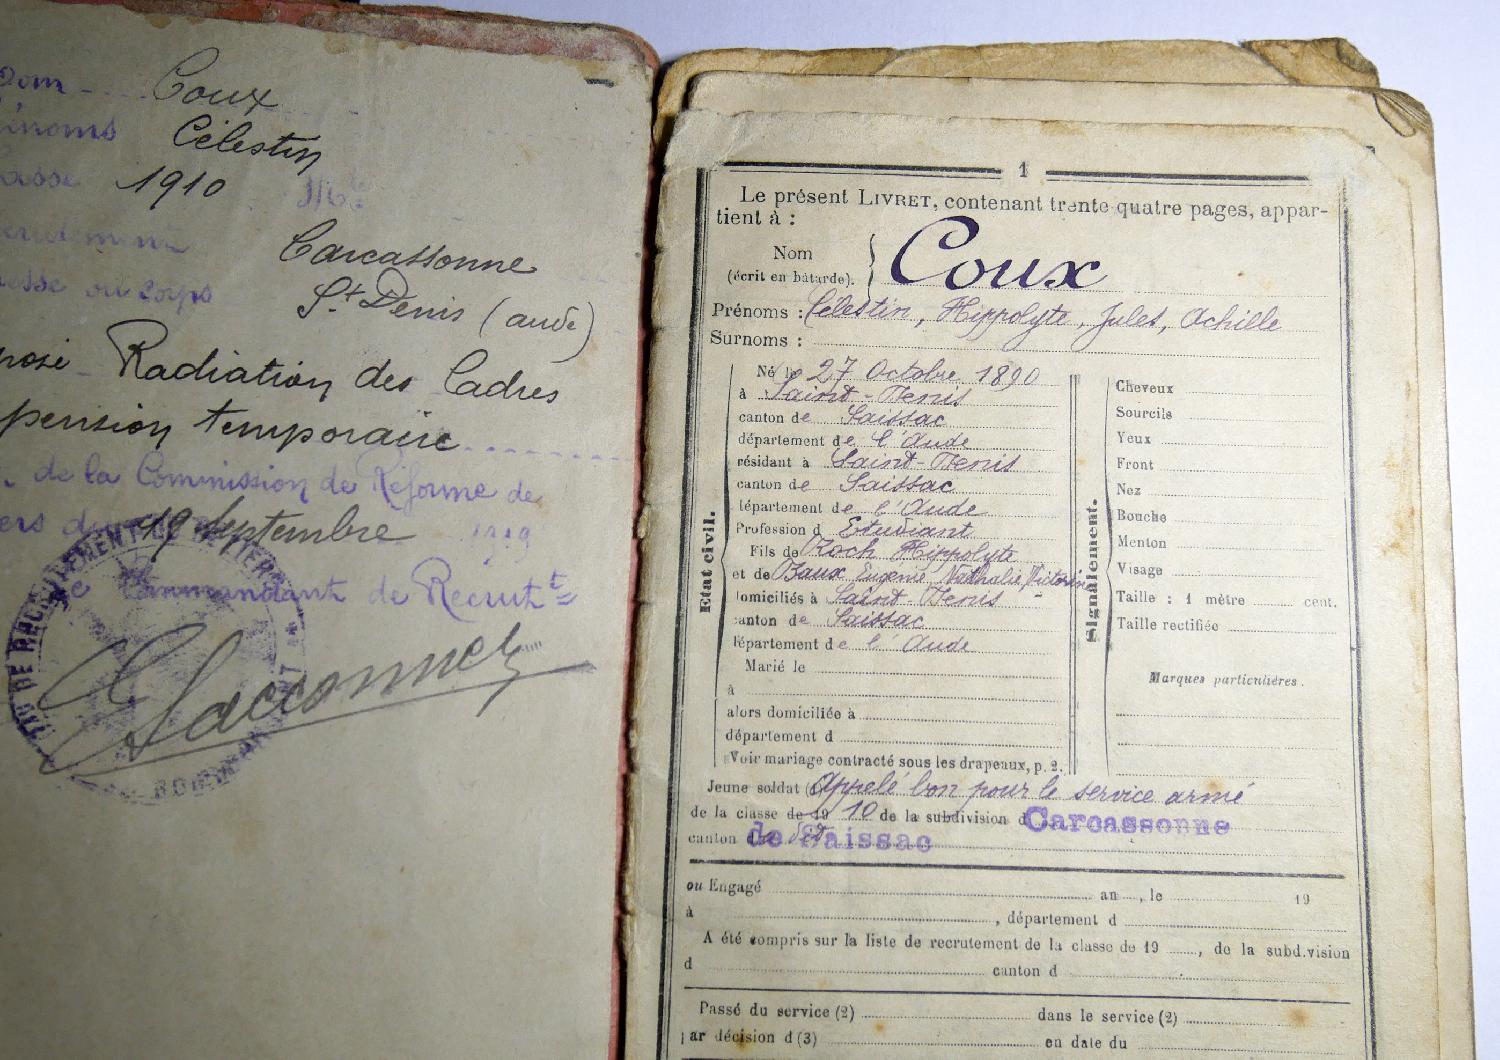 Coux
Célestin
1910 Mle
Carcassonne
ou corps St Denis (aude)
Radiation des Cadres
pension temporaire
de la Commission de Réforme de
19 Septembre 1919
Commandant de Recrutt
1
Le présent LIVRET, contenant trente quatre pages, appar-
tient à :
Nom
(écrit en bâtarde).
Coux
Prénoms : Célestin, Hippolyte, Jules, Achille
Surnoms :
Né le 27 Octobre 1890
à Saint-Denis
canton de Saissac
département de l'Aude
résidant à Saint-Denis
canton de Saissac
département de l'Aude
Profession d Etudiant
Fils de Roch Hippolyte
et de Baux Eugenie, Nathalie, Victorine
domiciliés à Saint-Denis
canton de Saissac
département de l'Aude
Marié le
à
alors domiciliée à
département d
Voir mariage contracté sous les drapeaux, p. 2.
Etat civil.
Signalement.
Cheveux
Sourcils
Yeux
Front
Nez
Bouche
Menton
Visage
Taille : 1 mètre cent.
Taille rectifiée
Marques particulières.
Jeune soldat ( Appelé bon pour le service armé
de la classe de 19 10 de la subdivision d Carcassonne
canton de Saissac
ou Engagé an , le 19
à , département d
A été compris sur la liste de recrutement de la classe de 19 , de la subd.vision
d canton d
Passé du service (2) dans le service (2)
par décision d (3) en date du